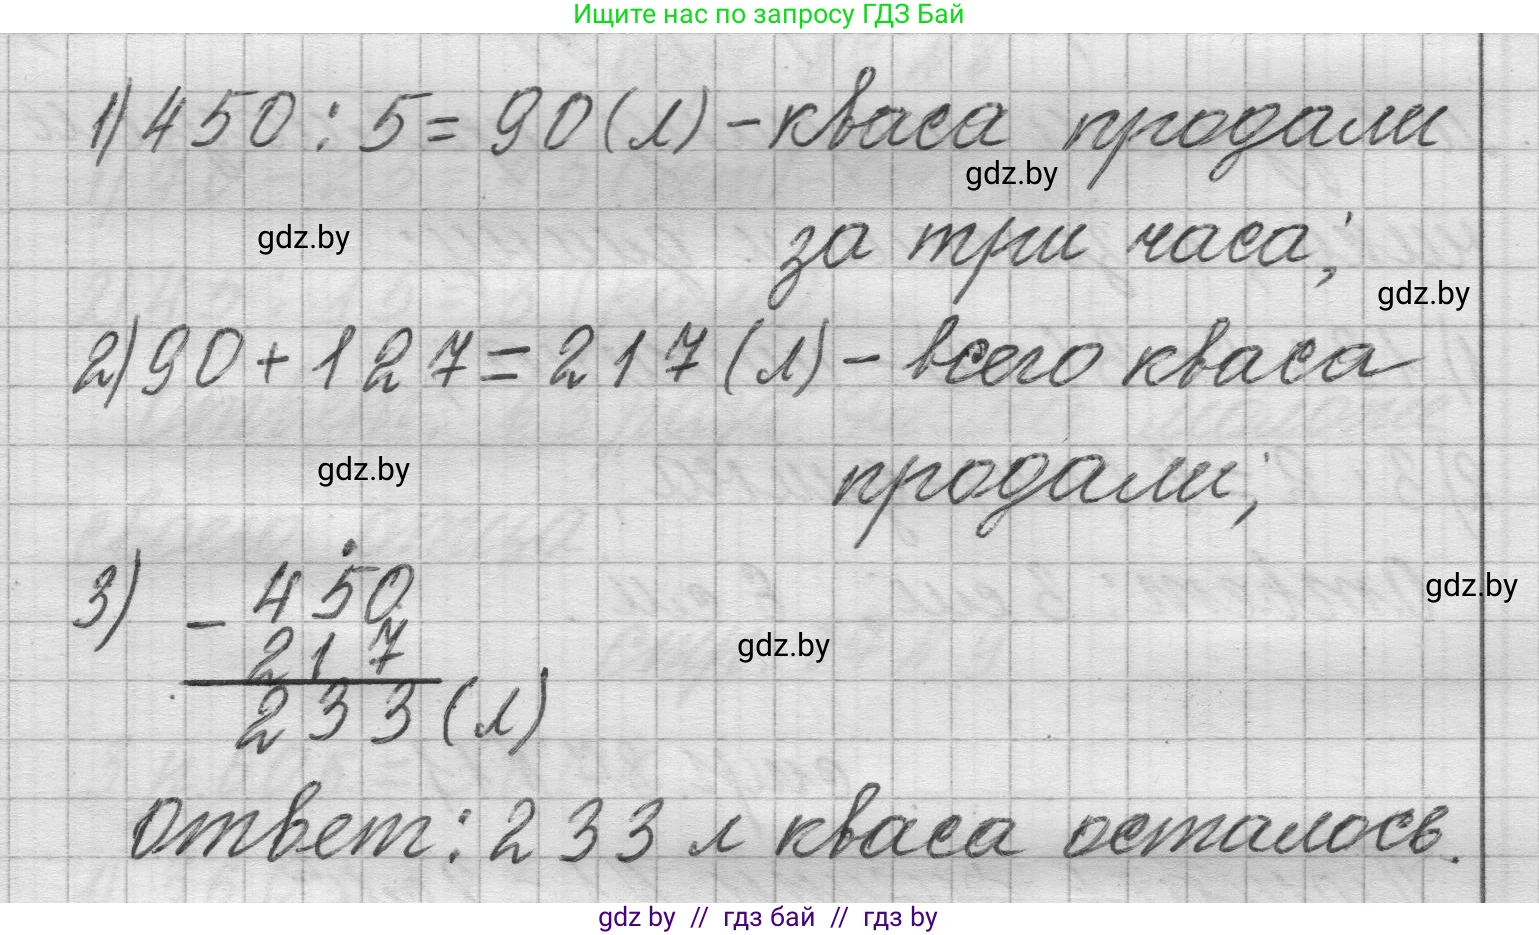 Ищите нас по запросу ГДЗ Бай
1) 450 : 5 = 90 (л) - кваса продали
gdz.by
gdz.by
за три часа;
gdz.by
2) 90 + 127 = 217 (л) - всего кваса
gdz.by
продали;
3) - 450
gdz.by
217
gdz.by
233 (л)
Ответ: 233 л кваса осталось.
gdz by // гдз бай // гдз by